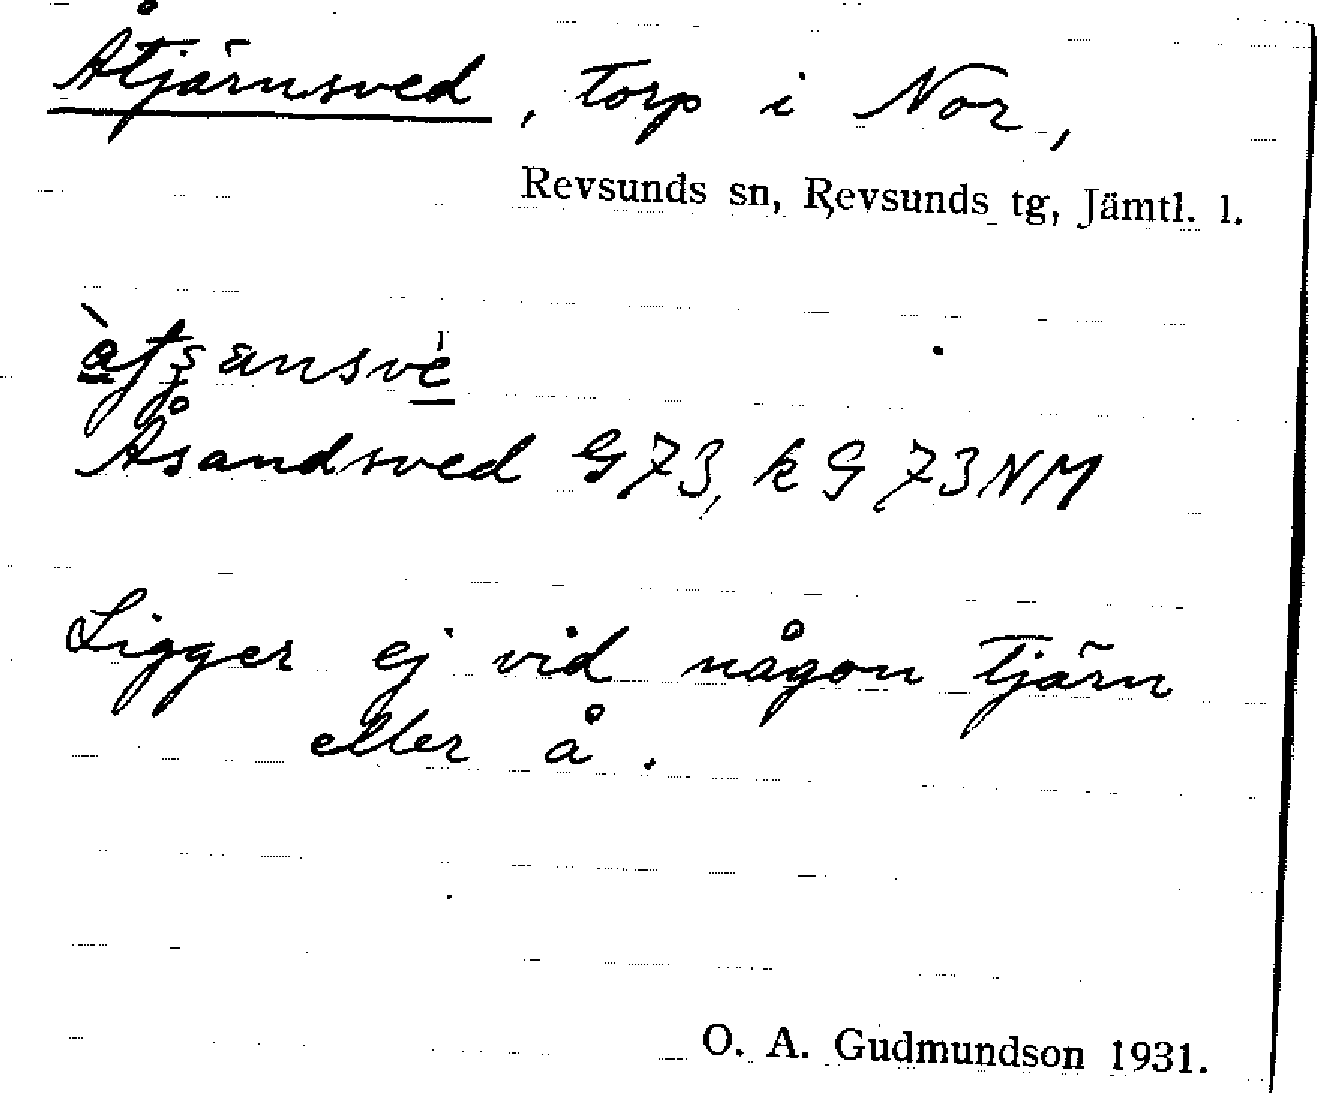 Åtjärnsved, torp i Nor,
Revsunds sn, Revsunds tg, Jämtl. l.
Åsandsved G73, k G 73NM
Ligger ej vid någon tjärn
eller å.
O. A. Gudmundson 1931.